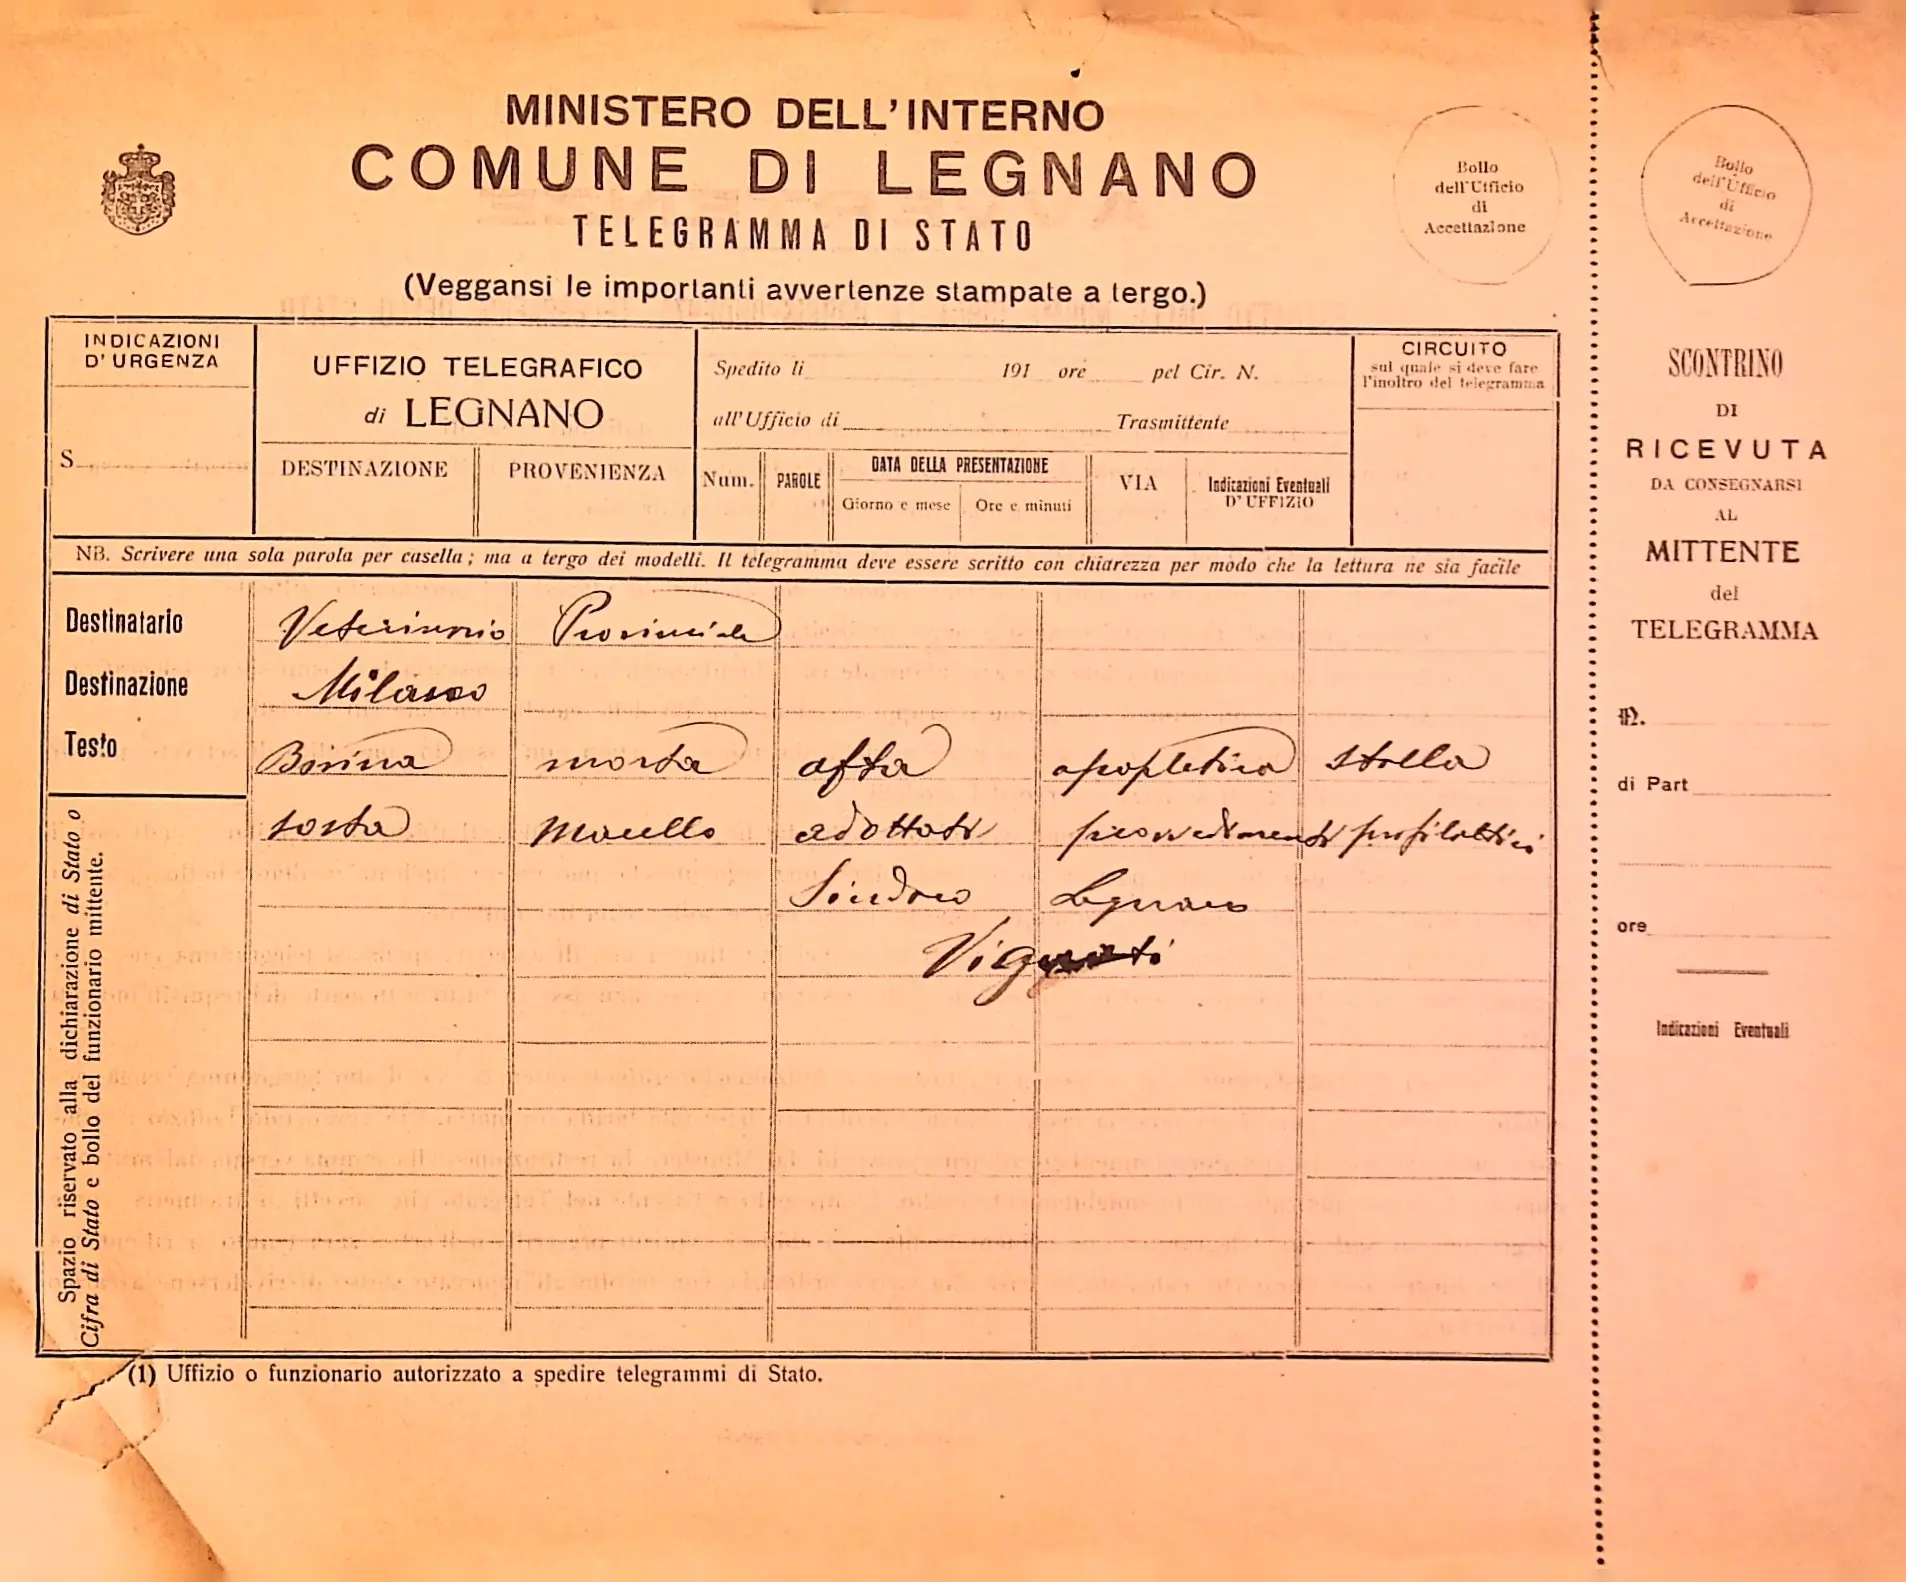 MINISTERO DELL'INTERNO
COMUNE DI LEGNANO
TELEGRAMMA DI STATO
(Veggansi le importanti avvertenze stampate a tergo.)
Bollo
dell'Ufficio
di
Accettazione
Bollo
dell'Ufficio
di
Accettazione
INDICAZIONI
D'URGENZA
S
UFFIZIO TELEGRAFICO
di LEGNANO
DESTINAZIONE PROVENIENZA
Spedito li 191 ore pel Cir. N.
all'Ufficio di Trasmittente
Num. PAROLE DATA DELLA PRESENTAZIONE
Giorno e mese Ore e minuti
VIA Indicazioni Eventuali
D'UFFIZIO
CIRCUITO
sul quale si deve fare
l'inoltro del telegramma
NB. Scrivere una sola parola per casella; ma a tergo dei modelli. Il telegramma deve essere scritto con chiarezza per modo che la lettura ne sia facile
Destinatario Veterinario Provinciale
Destinazione Milano
Testo Bovina morta afta apopletica stalla
sosta Macello adottati provvedimenti profilattici
Sindaco Legnano
Vignati
Spazio riservato alla dichiarazione di Stato o
Cifra di Stato e bollo del funzionario mittente.
(1) Uffizio o funzionario autorizzato a spedire telegrammi di Stato.
SCONTRINO
DI
RICEVUTA
DA CONSEGNARSI
AL
MITTENTE
del
TELEGRAMMA
N.
di Part
ore
Indicazioni Eventuali